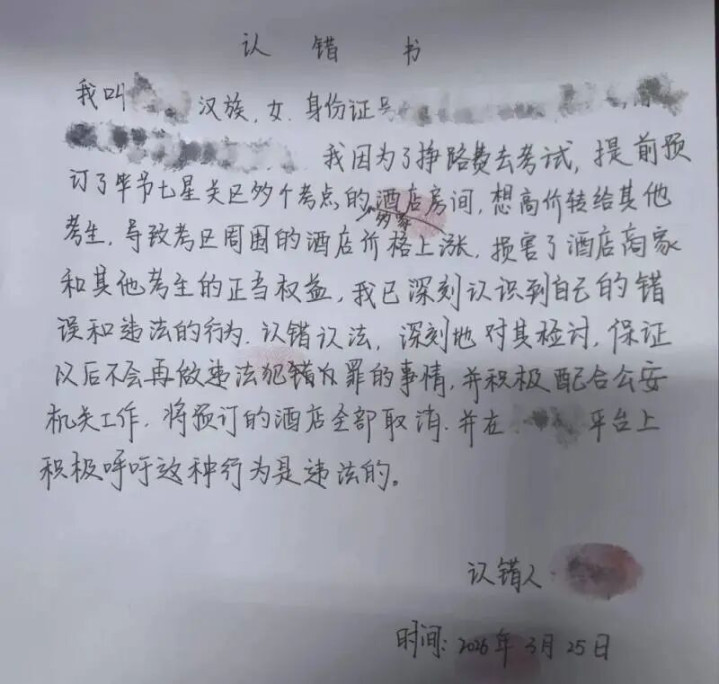 认错书
我叫 汉族,女.身份证号
我因为了挣路费去考试,提前预
订了毕节七星关区多个考点的多家酒店房间,想高价转给其他
考生.导致考区周围的酒店价格上涨.损害了酒店商家
和其他考生的正当权益,我已深刻认识到自己的错
误和违法的行为.认错认法,深刻地对其检讨,保证
以后不会再做违法犯罪的事情,并积极配合公安
机关工作.将预订的酒店全部取消.并在 平台上
积极呼吁这种行为是违法的。
认错人.
时间:2026年3月25日